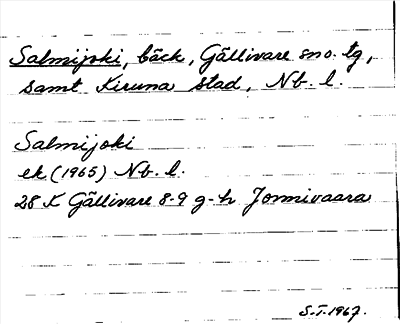 Salmijoki, bäck, Gällivare sno. tg,
samt Kiruna stad, Nb. l.
Salmijoki
ek. (1965) Nb. l.
28 K Gällivare 8-9 g-h Jormivaara
S.T. 1967.